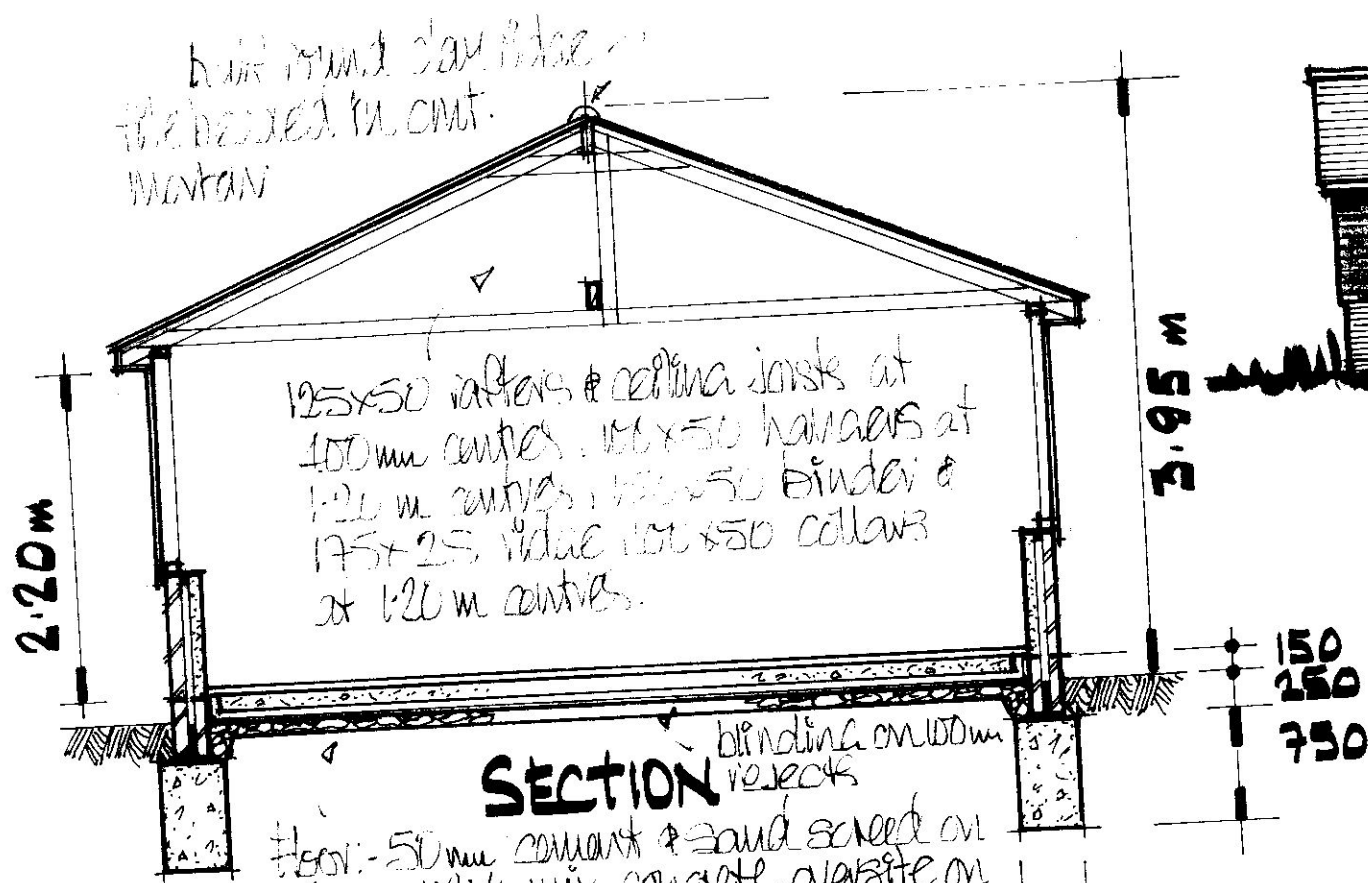 half round clay ridge
tile bedded in cmt.
mortar
125x50 rafters & ceiling joists at
400mm centres. 100x50 hangers at
1.20m centres, x50 binder &
175x25 ridge 100x50 collars
at 1.20m centres.
2.20m
3.95 m
150
150
750
blinding on 100mm
rejects
SECTION
Floor:- 50mm cement & sand screed on
mix concrete oversite on